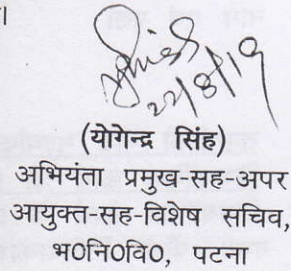 ।
22/8/19
(योगेन्द्र सिंह)
अभियंता प्रमुख-सह-अपर
आयुक्त-सह-विशेष सचिव,
भ0नि0वि0, पटना